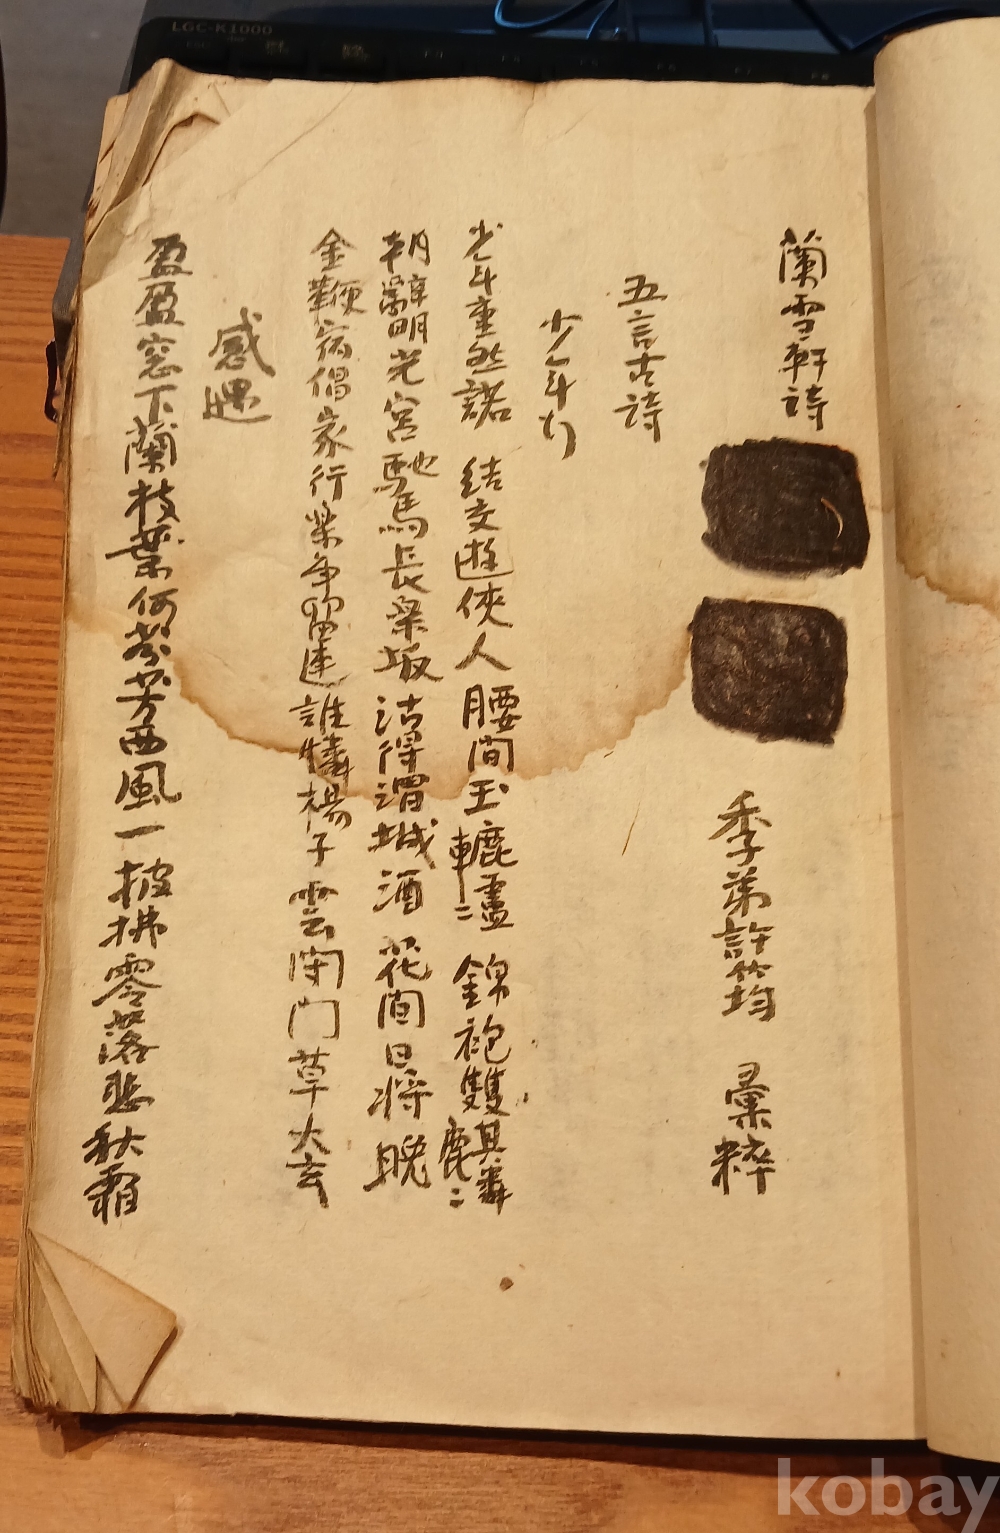 蘭雪軒詩
季弟許筠 彙粹
五言古詩
少年行
少年重然諾 結交遊俠人 腰間玉轆轤 錦袍雙麒麟
朝辭明光宮馳馬長樂坂沽得渭城酒 花間日將晩
金鞭宿倡家行樂争留連誰憐楊子雲閉門草太玄
感遇
盈盈窓下蘭枝葉何芬芳西風一披拂零落悲秋霜
LGC-K1000
kobay